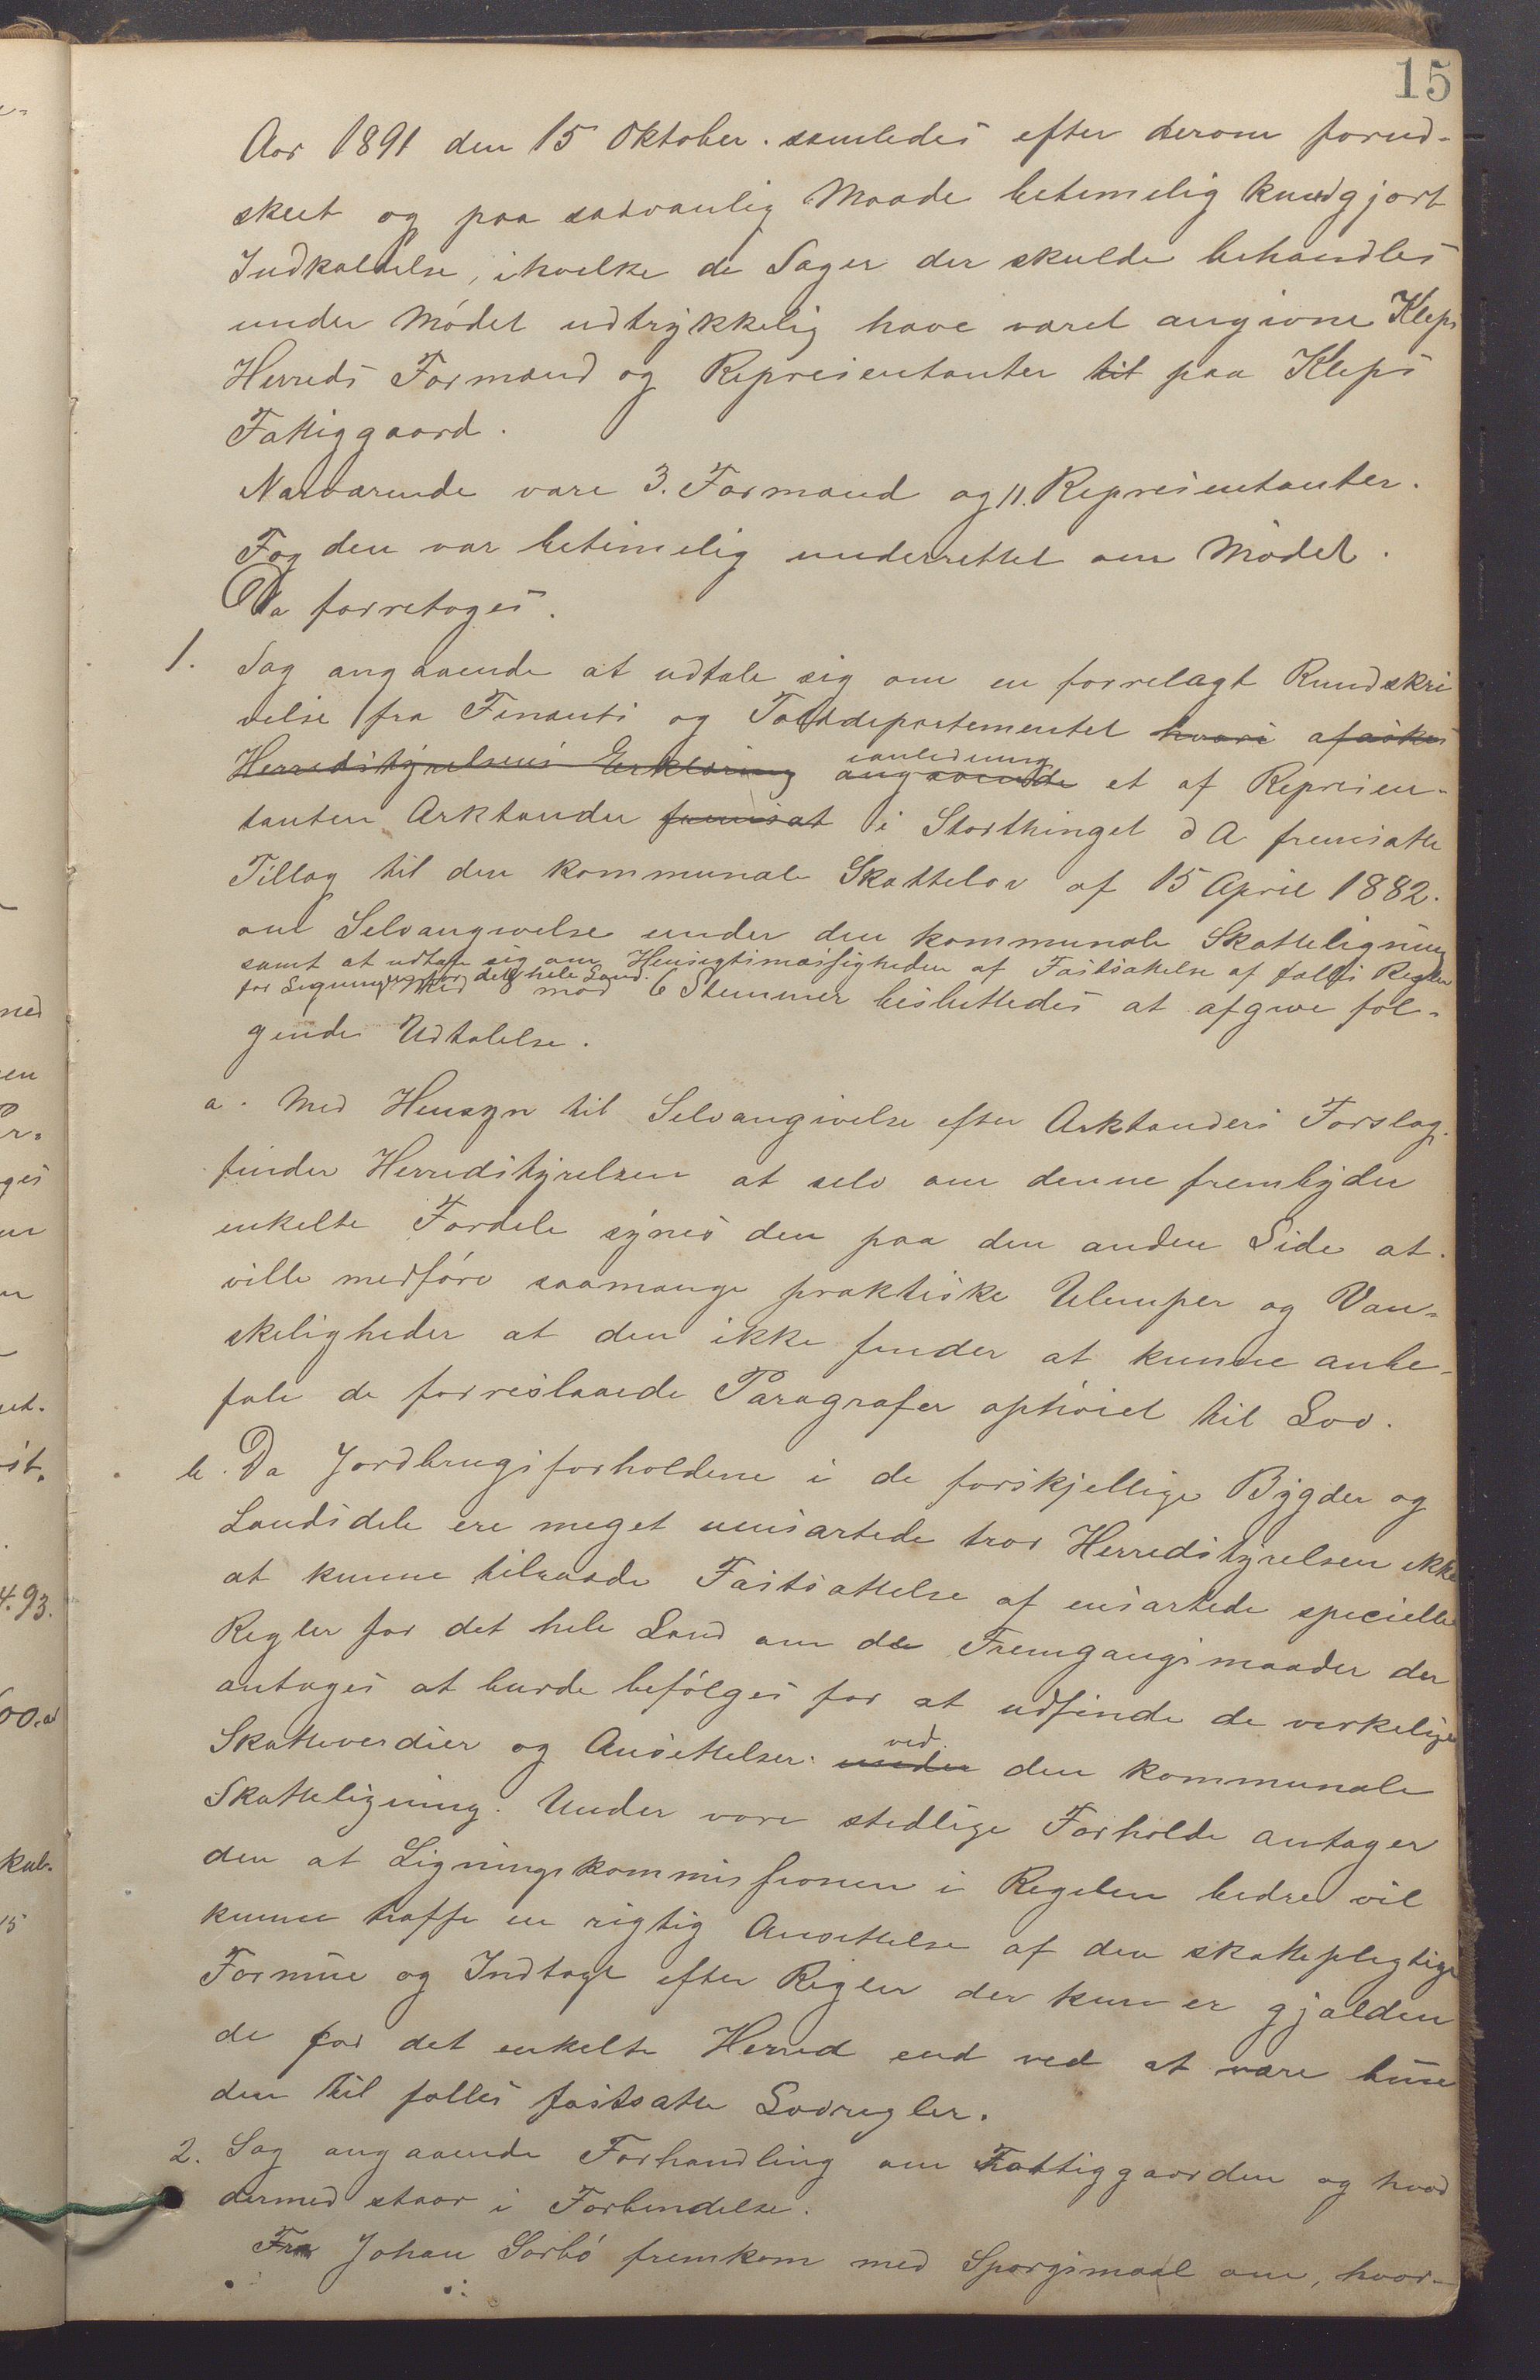 15
Aar 1891 den 15 Oktober. samledes efter derom forud-
skeet og paa sædvanlig Maade betimelig kundgjort
Indkaldelse, ihvilke de Sager der skulde behandles
under Mødet udtrykkelig have været angivne Kleps
Herreds Formænd og Repræsentanter til paa Kleps
Fattiggaard.
Nærværende vare 3. Formænd og 11. Repræsentanter.
Fogden var betimelig underrettet om Mødet.
Da forretoges.
1. Sag angaaende at udtale sig om en forrelagt Rundskri
velse fra Finants og Tolddepartementet hvori afæskes
Herredstyrelsens Erklæring angaaende ianledning et af Repræsen-
tanten Arktander fremsat i Storthinget d A fremsatte
Tillæg til den kommunale Skattelov af 15 April 1882.
om Selvangivelse under den kommunale Skatteligning
samt at udtale sig om Hensigtsmæssigheden af Fastsættelse af fælles Regler
for Ligningen for det hele Land.
Med 8 mod 6 Stemmer besluttedes at afgive føl-
gende Udtalelse.
a. Med Hensyn til Selvangivelse efter Arktanders Forslag.
finder Herredstyrelsen at selv om denne frembyder
enkelte Fordele synes den paa den anden Side at.
ville medføre saamange praktiske Ulemper og Van-
skeligheder at den ikke finder at kunne anbe-
fale de forreslaaede Paragrafer ophøiet til Lov.
b. Da Jordbrugsforholdene i de forskjellige Bygder og
Landsdele ere meget uensartede tror Herredstyrelsen ikke
at kunne tilraade Fastsættelse af ensartede specielle
Regler for det hele Land om de Fremgangsmaader der
antages at burde befølges for at udfinde de verkelige
Skatteverdier og Ansettelser. under ved. den kommunale
Skatteligning. Under vore stedlige Forholde antager
den at Ligningskommissionen i Regelen bedre vil
kunne træffe en rigtig Ansettelse af den skattepligtige
Formue og Indtægt efter Regler der kun er gjælden
de for det enkelte Herred end ved at være bun
den til fælles fastsatte Lovregler.
2. Sag angaaende Forhandling om Fattiggaarden og hvad
dermed staar i Forbindelse.
Fra Johan Sørbø fremkom med Spørgsmaal om, hvor-